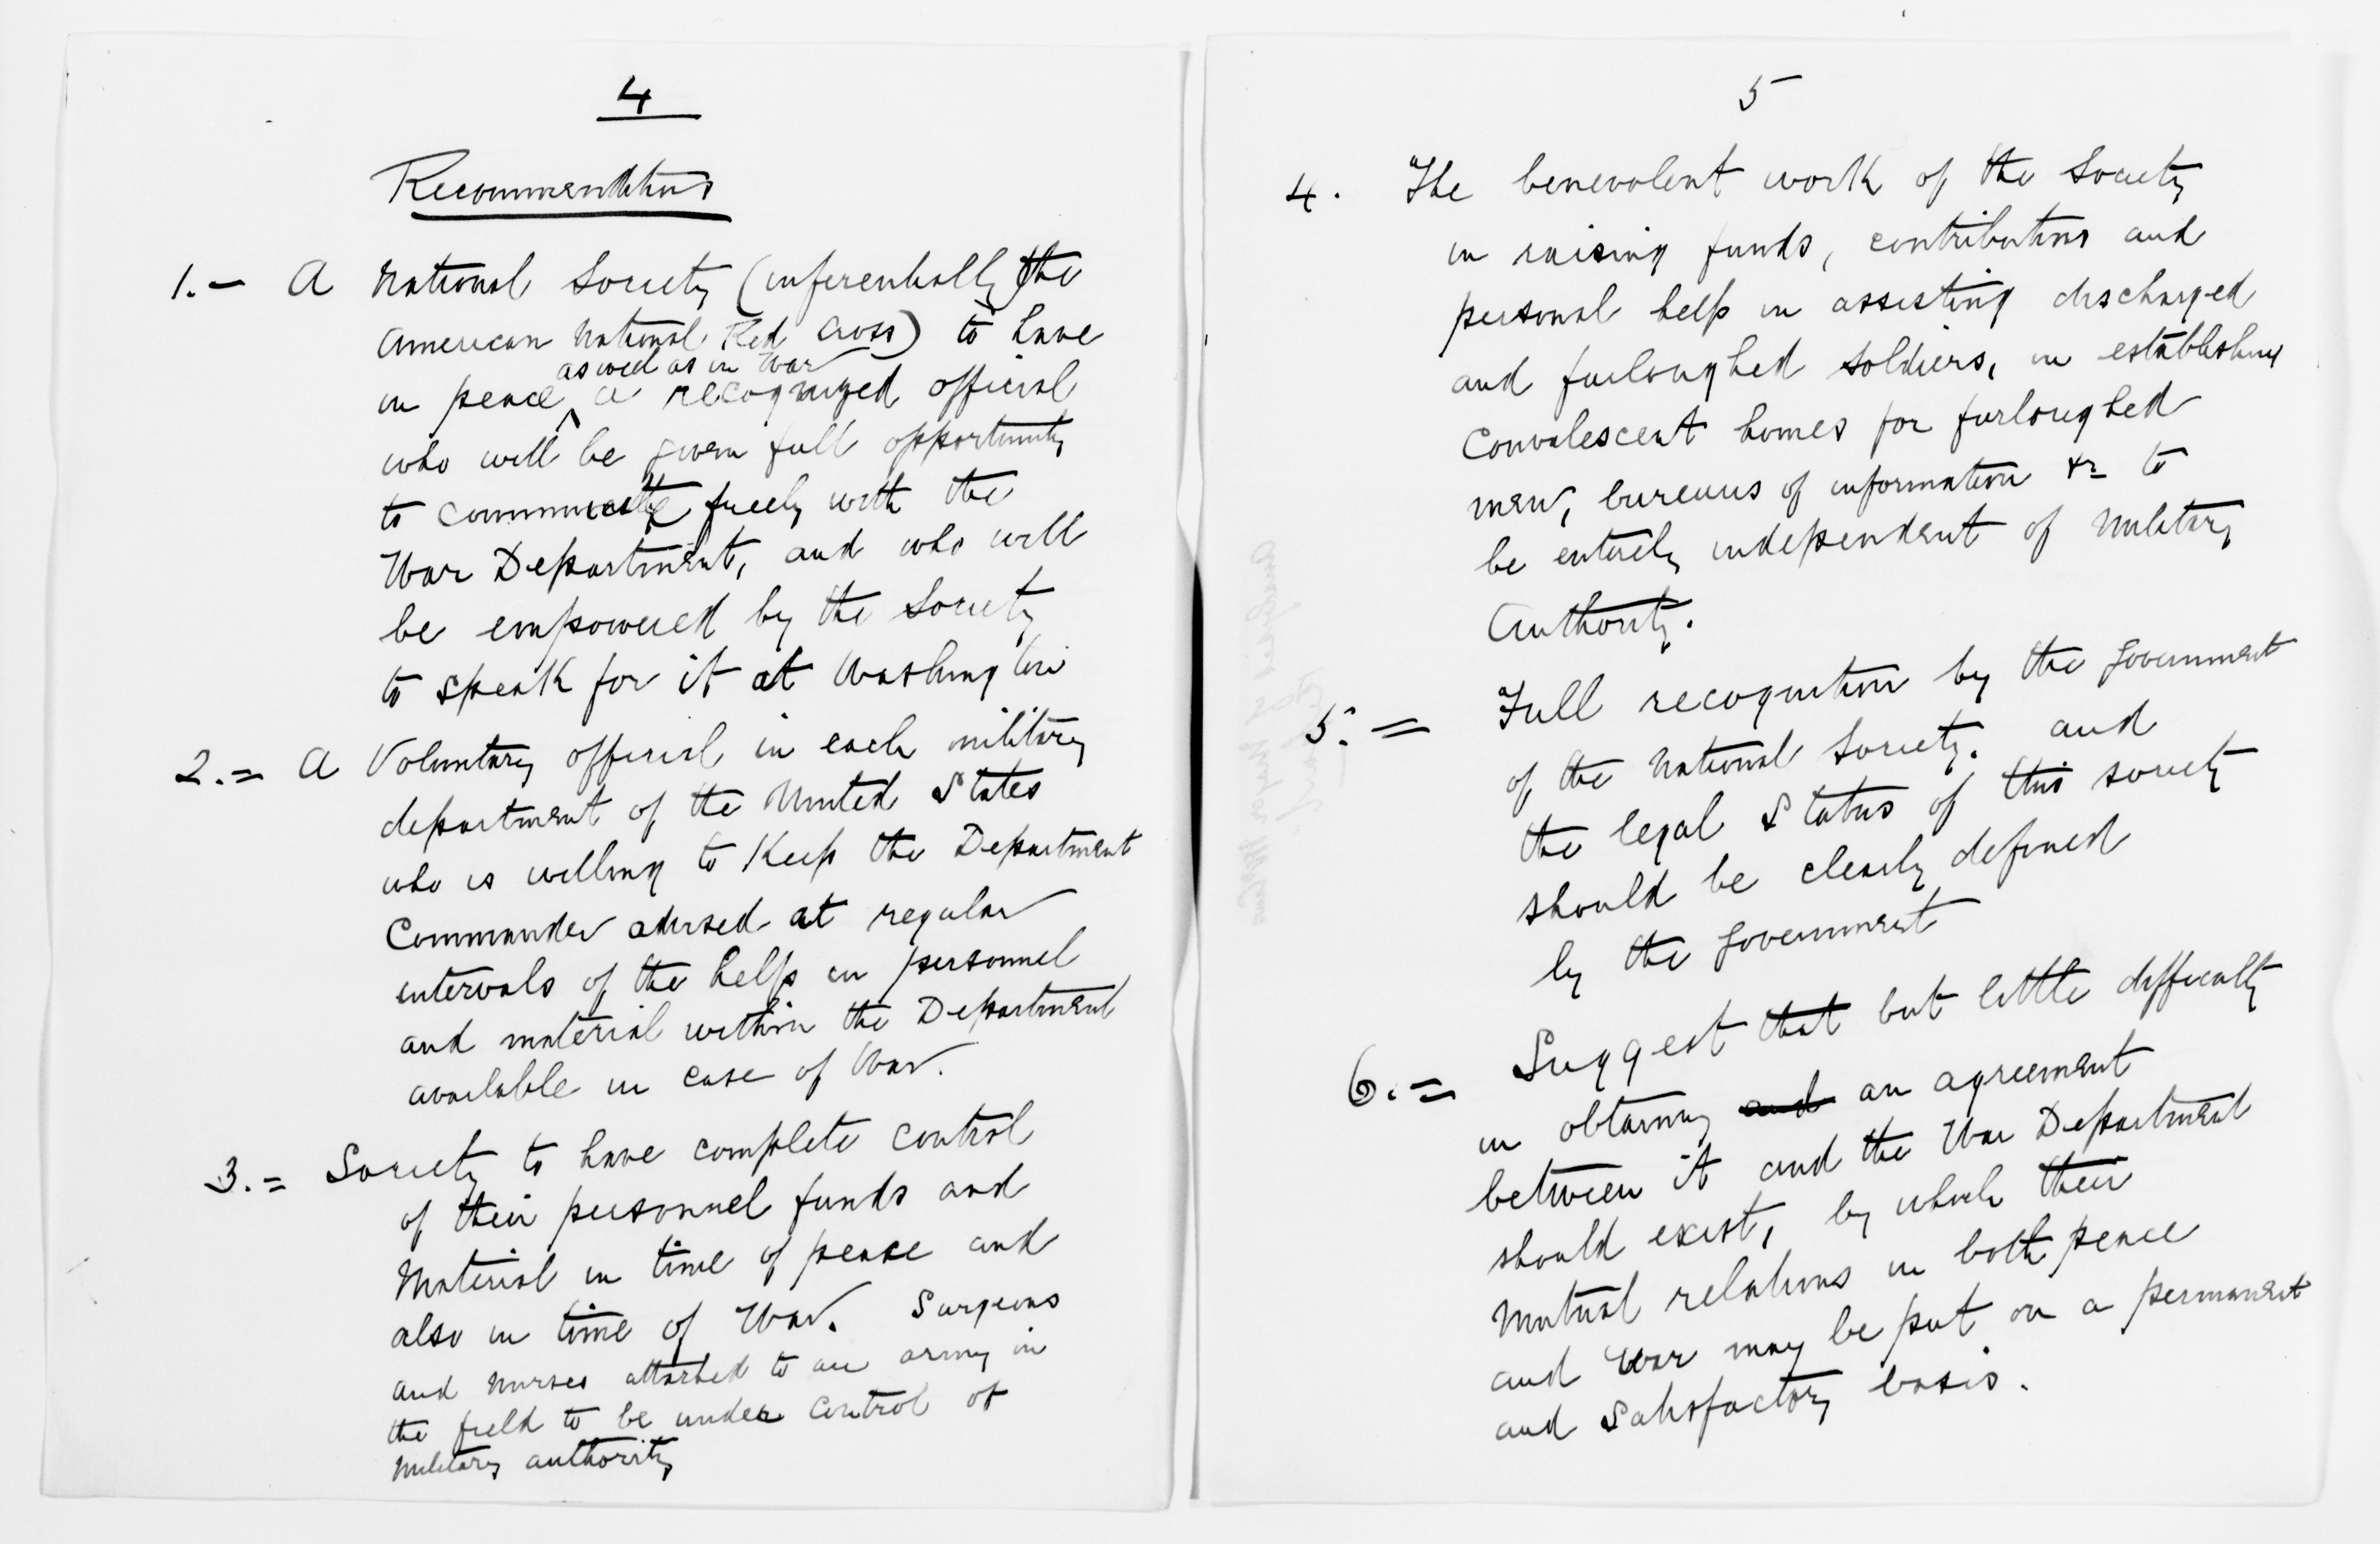 4
Recommendations
1.- A National Society (inferentially the
American National Red Cross) to have
as well as in War
in peace ^ a recognized official
who will be given full opportunity
to communicate freely with the
War Department, and who will
be empowered by the Society
to speak for it at Washington
2.= A Voluntary official in each military
department of the United States
who is willing to Keep the Department
Commander advised at regular
intervals of the help in personnel
and material within the Department
available in case of War.
3.= Society to have complete control
of their personnel funds and
Material in time of peace and
also in time of War. Surgeons
and nurses attached to an army in
the field to be under control of
Military authority
5
4. The benevolent work of the Society
in raising funds, contributions and
personal help in assisting discharged
and furloughed soldiers, in establishing
Convalescent homes for furloughed
men, bureaus of information &c to
be entirely independent of Military
Authority.
5.= Full recognition by the Government
of the National Society. and
the legal Status of this society
should be clearly defined
by the Government
6.= Suggest that but little difficulty
in obtaining and an agreement
between it and the War Department
should exist, by which their
Mutual relations in both peace
and War may be put on a permanent
and Satisfactory basis.